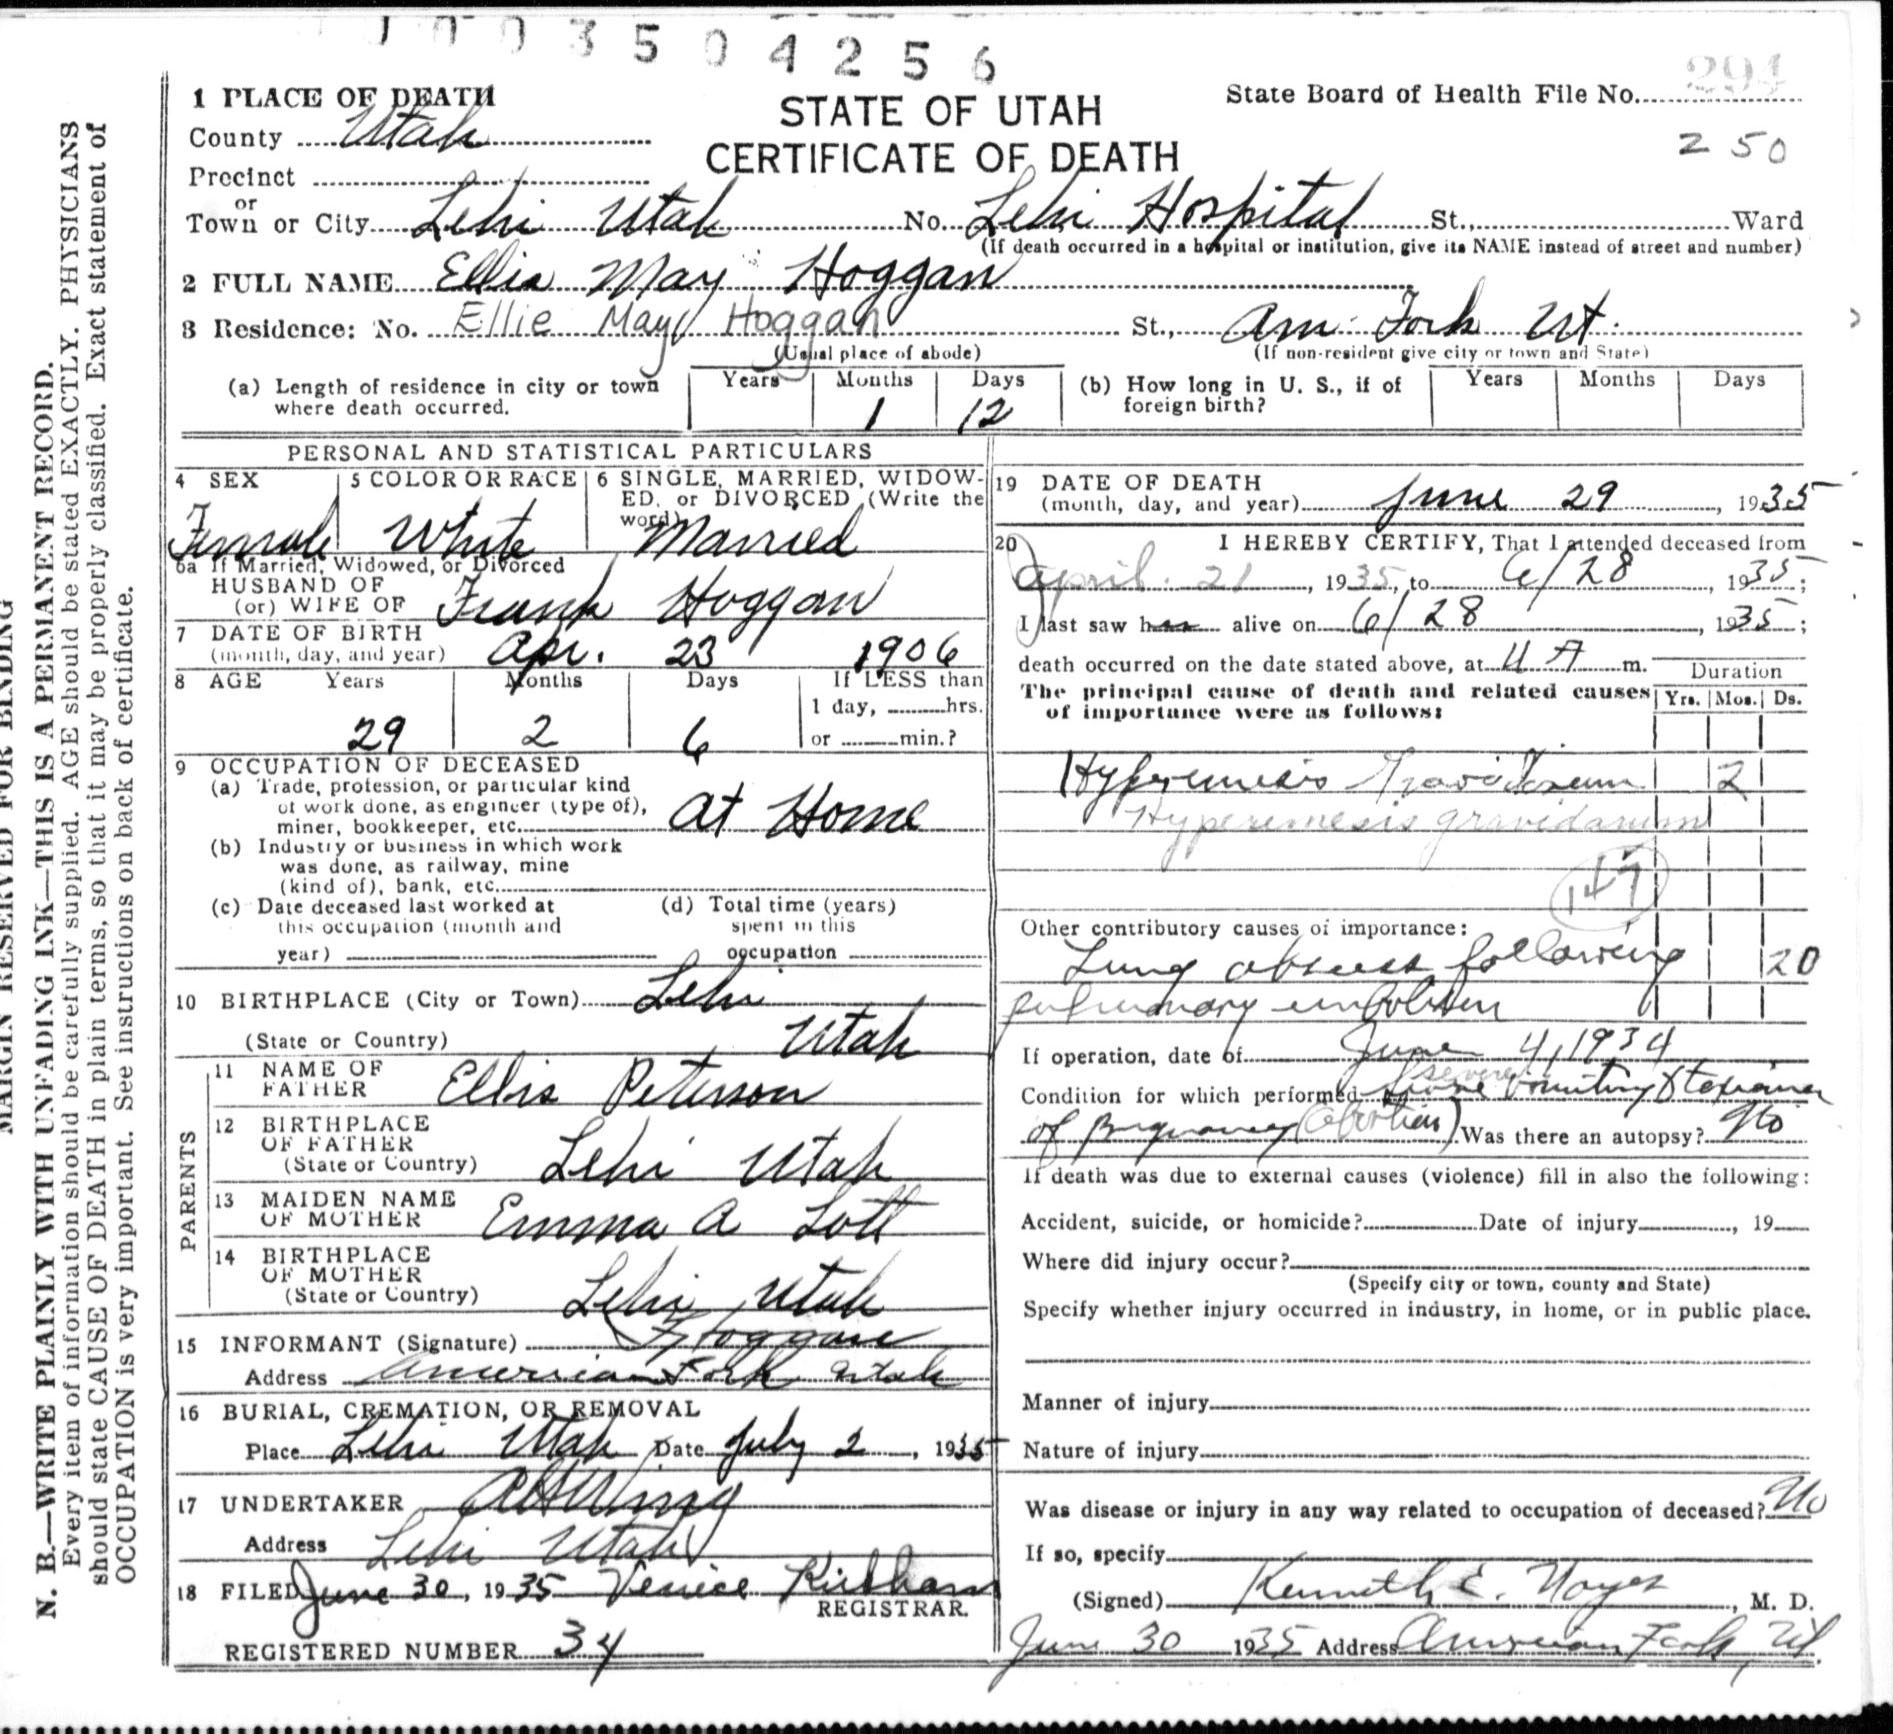 0003504256
294
1 PLACE OF DEATH
STATE OF UTAH
State Board of Health File No.
County Utah
CERTIFICATE OF DEATH
2 50
Precinct
or
Town or City Lehi Utah No. Lehi Hospital St., Ward
(If death occurred in a hospital or institution, give its NAME instead of street and number)
2 FULL NAME Ellis May Hoggan
3 Residence: No. Ellie May Hoggan St., Am Fork Ut.
(Usual place of abode) (If non-resident give city or town and State)
(a) Length of residence in city or town where death occurred. Years Months 1 Days 12
(b) How long in U. S., if of foreign birth? Years Months Days
PERSONAL AND STATISTICAL PARTICULARS
4 SEX
Female
5 COLOR OR RACE
White
6 SINGLE, MARRIED, WIDOW-
ED, or DIVORCED (Write the
word)
Married
6a If Married, Widowed, or Divorced
HUSBAND OF
(or) WIFE OF Frank Hoggan
7 DATE OF BIRTH
(month, day, and year) Apr. 23 1906
8 AGE Years Months Days If LESS than
1 day, hrs.
29 2 6 or min.?
9 OCCUPATION OF DECEASED
(a) Trade, profession, or particular kind
of work done, as engineer (type of),
miner, bookkeeper, etc. At Home
(b) Industry or business in which work
was done, as railway, mine
(kind of), bank, etc.
(c) Date deceased last worked at
this occupation (month and
year)
(d) Total time (years)
spent in this
occupation
10 BIRTHPLACE (City or Town) Lehi
(State or Country) Utah
PARENTS
11 NAME OF
FATHER Ellis Peterson
12 BIRTHPLACE
OF FATHER
(State or Country) Lehi Utah
13 MAIDEN NAME
OF MOTHER Emma A Lott
14 BIRTHPLACE
OF MOTHER
(State or Country) Lehi Utah
15 INFORMANT (Signature) F Hoggan
Address American Fork Utah
16 BURIAL, CREMATION, OR REMOVAL
Place Lehi Utah Date July 2, 1935
17 UNDERTAKER Wing
Address Lehi Utah
18 FILED June 30, 1935 Venice Kirkham
REGISTRAR.
REGISTERED NUMBER 34
19 DATE OF DEATH
(month, day, and year) June 29, 1935
20 I HEREBY CERTIFY, That I attended deceased from
April 21, 1935, to 6/28, 1935;
I last saw her alive on 6/28, 1935;
death occurred on the date stated above, at 4 A m.
Duration
The principal cause of death and related causes
of importance were as follows:
Yrs. Mos. Ds.
Hyperemesis Gravidarum 2
Hyperemesis gravidarum
147
Other contributory causes of importance:
Lung abscess following 20
pulmonary embolism
If operation, date of June 4, 1934
severe
Condition for which performed vomiting & toxemia
of Pregnancy (abortion) Was there an autopsy? No
If death was due to external causes (violence) fill in also the following:
Accident, suicide, or homicide? Date of injury, 19
Where did injury occur?
(Specify city or town, county and State)
Specify whether injury occurred in industry, in home, or in public place.
Manner of injury
Nature of injury
Was disease or injury in any way related to occupation of deceased? No
If so, specify
(Signed) Kenneth E. Noyes, M. D.
June 30 1935 Address American Fork, Ut.
MARGIN RESERVED FOR BINDING
N. B.—WRITE PLAINLY WITH UNFADING INK—THIS IS A PERMANENT RECORD.
Every item of information should be carefully supplied. AGE should be stated EXACTLY. PHYSICIANS
should state CAUSE OF DEATH in plain terms, so that it may be properly classified. Exact statement of
OCCUPATION is very important. See instructions on back of certificate.